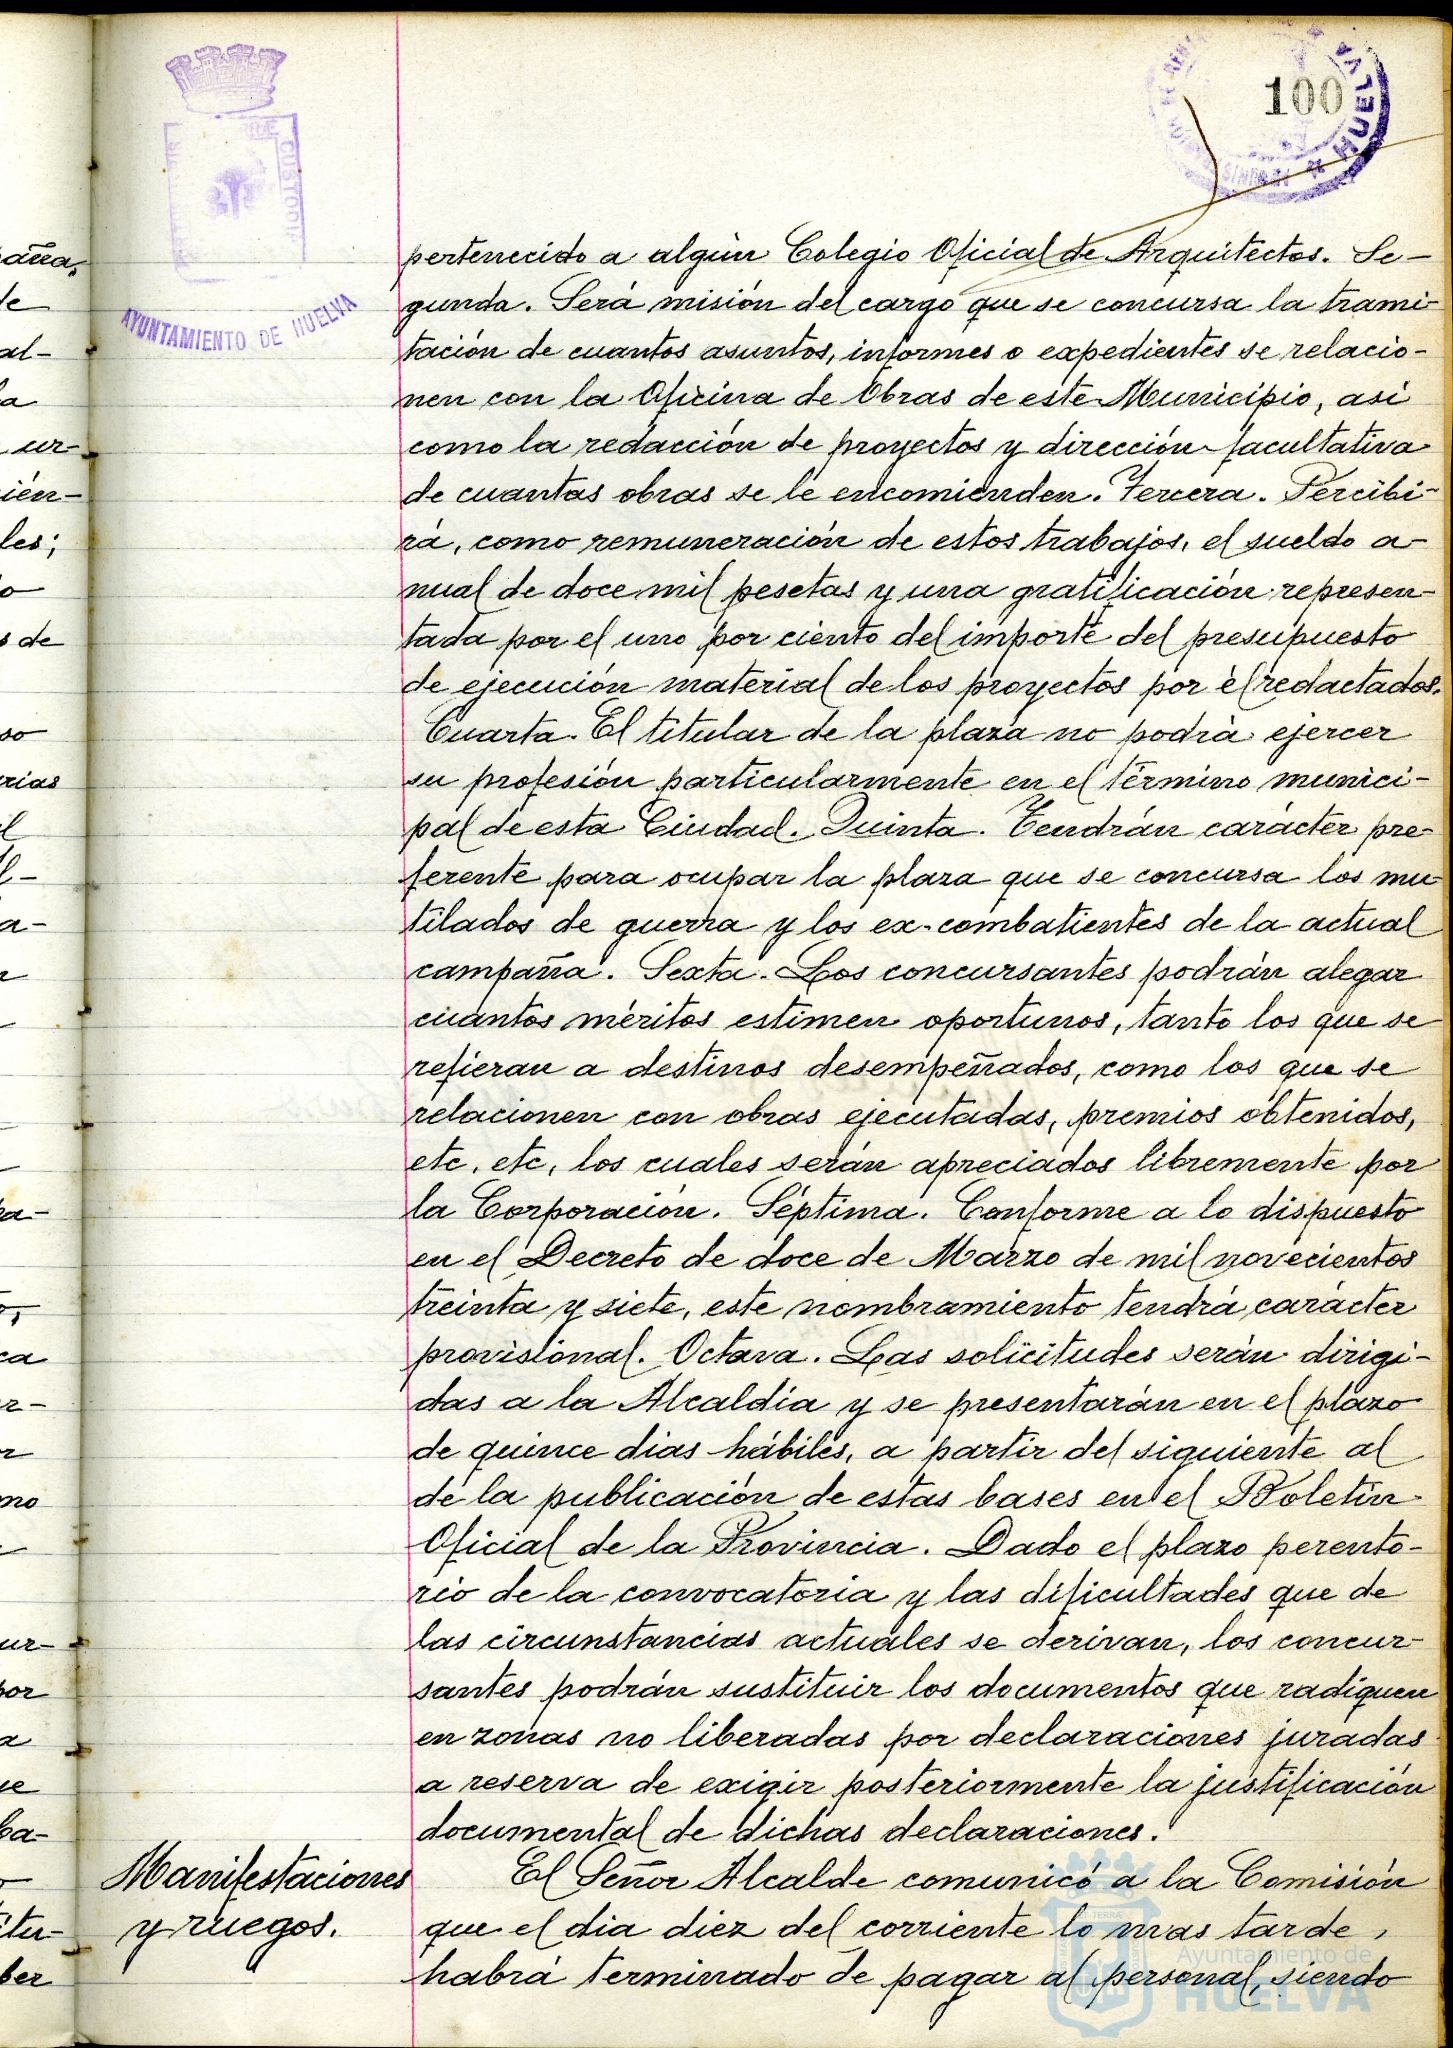 100
HUELVA
AYUNTAMIENTO DE HUELVA
CUSTODIT
pertenecido a algún Colegio Oficial de Arquitectos. Se-
gunda. Será misión del cargo que se concursa la trami-
tación de cuantos asuntos, informes o expedientes se relacio-
nen con la Oficina de Obras de este Municipio, asi
como la redacción de proyectos y dirección facultativa
de cuantas obras se le encomienden. Tercera. Percibi-
rá, como remuneración de estos trabajos, el sueldo a-
nual de doce mil pesetas y una gratificación represen-
tada por el uno por ciento del importe del presupuesto
de ejecución material de los proyectos por él redactados.
Cuarta. El titular de la plaza no podrá ejercer
su profesión particularmente en el término munici-
pal de esta Ciudad. Quinta. Tendrán carácter pre-
ferente para ocupar la plaza que se concursa los mu-
tilados de guerra y los ex-combatientes de la actual
campaña. Sexta. Los concursantes podrán alegar
cuantos méritos estimen oportunos, tanto los que se
refieran a destinos desempeñados, como los que se
relacionen con obras ejecutadas, premios obtenidos,
etc, etc, los cuales serán apreciados libremente por
la Corporación. Séptima. Conforme a lo dispuesto
en el Decreto de doce de Marzo de mil novecientos
treinta y siete, este nombramiento tendrá carácter
provisional. Octava. Las solicitudes serán dirigi-
das a la Alcaldía y se presentarán en el plazo
de quince dias hábiles, a partir del siguiente al
de la publicación de estas bases en el Boletín
Oficial de la Provincia. Dado el plazo perento-
rio de la convocatoria y las dificultades que de
las circunstancias actuales se derivan, los concur-
santes podrán sustituir los documentos que radiquen
en zonas no liberadas por declaraciones juradas
a reserva de exigir posteriormente la justificación
documental de dichas declaraciones.
Manifestaciones
y ruegos.
El Señor Alcalde comunicó a la Comisión
que el dia diez del corriente lo mas tarde,
habrá terminado de pagar al personal, siendo
Ayuntamiento de
HUELVA